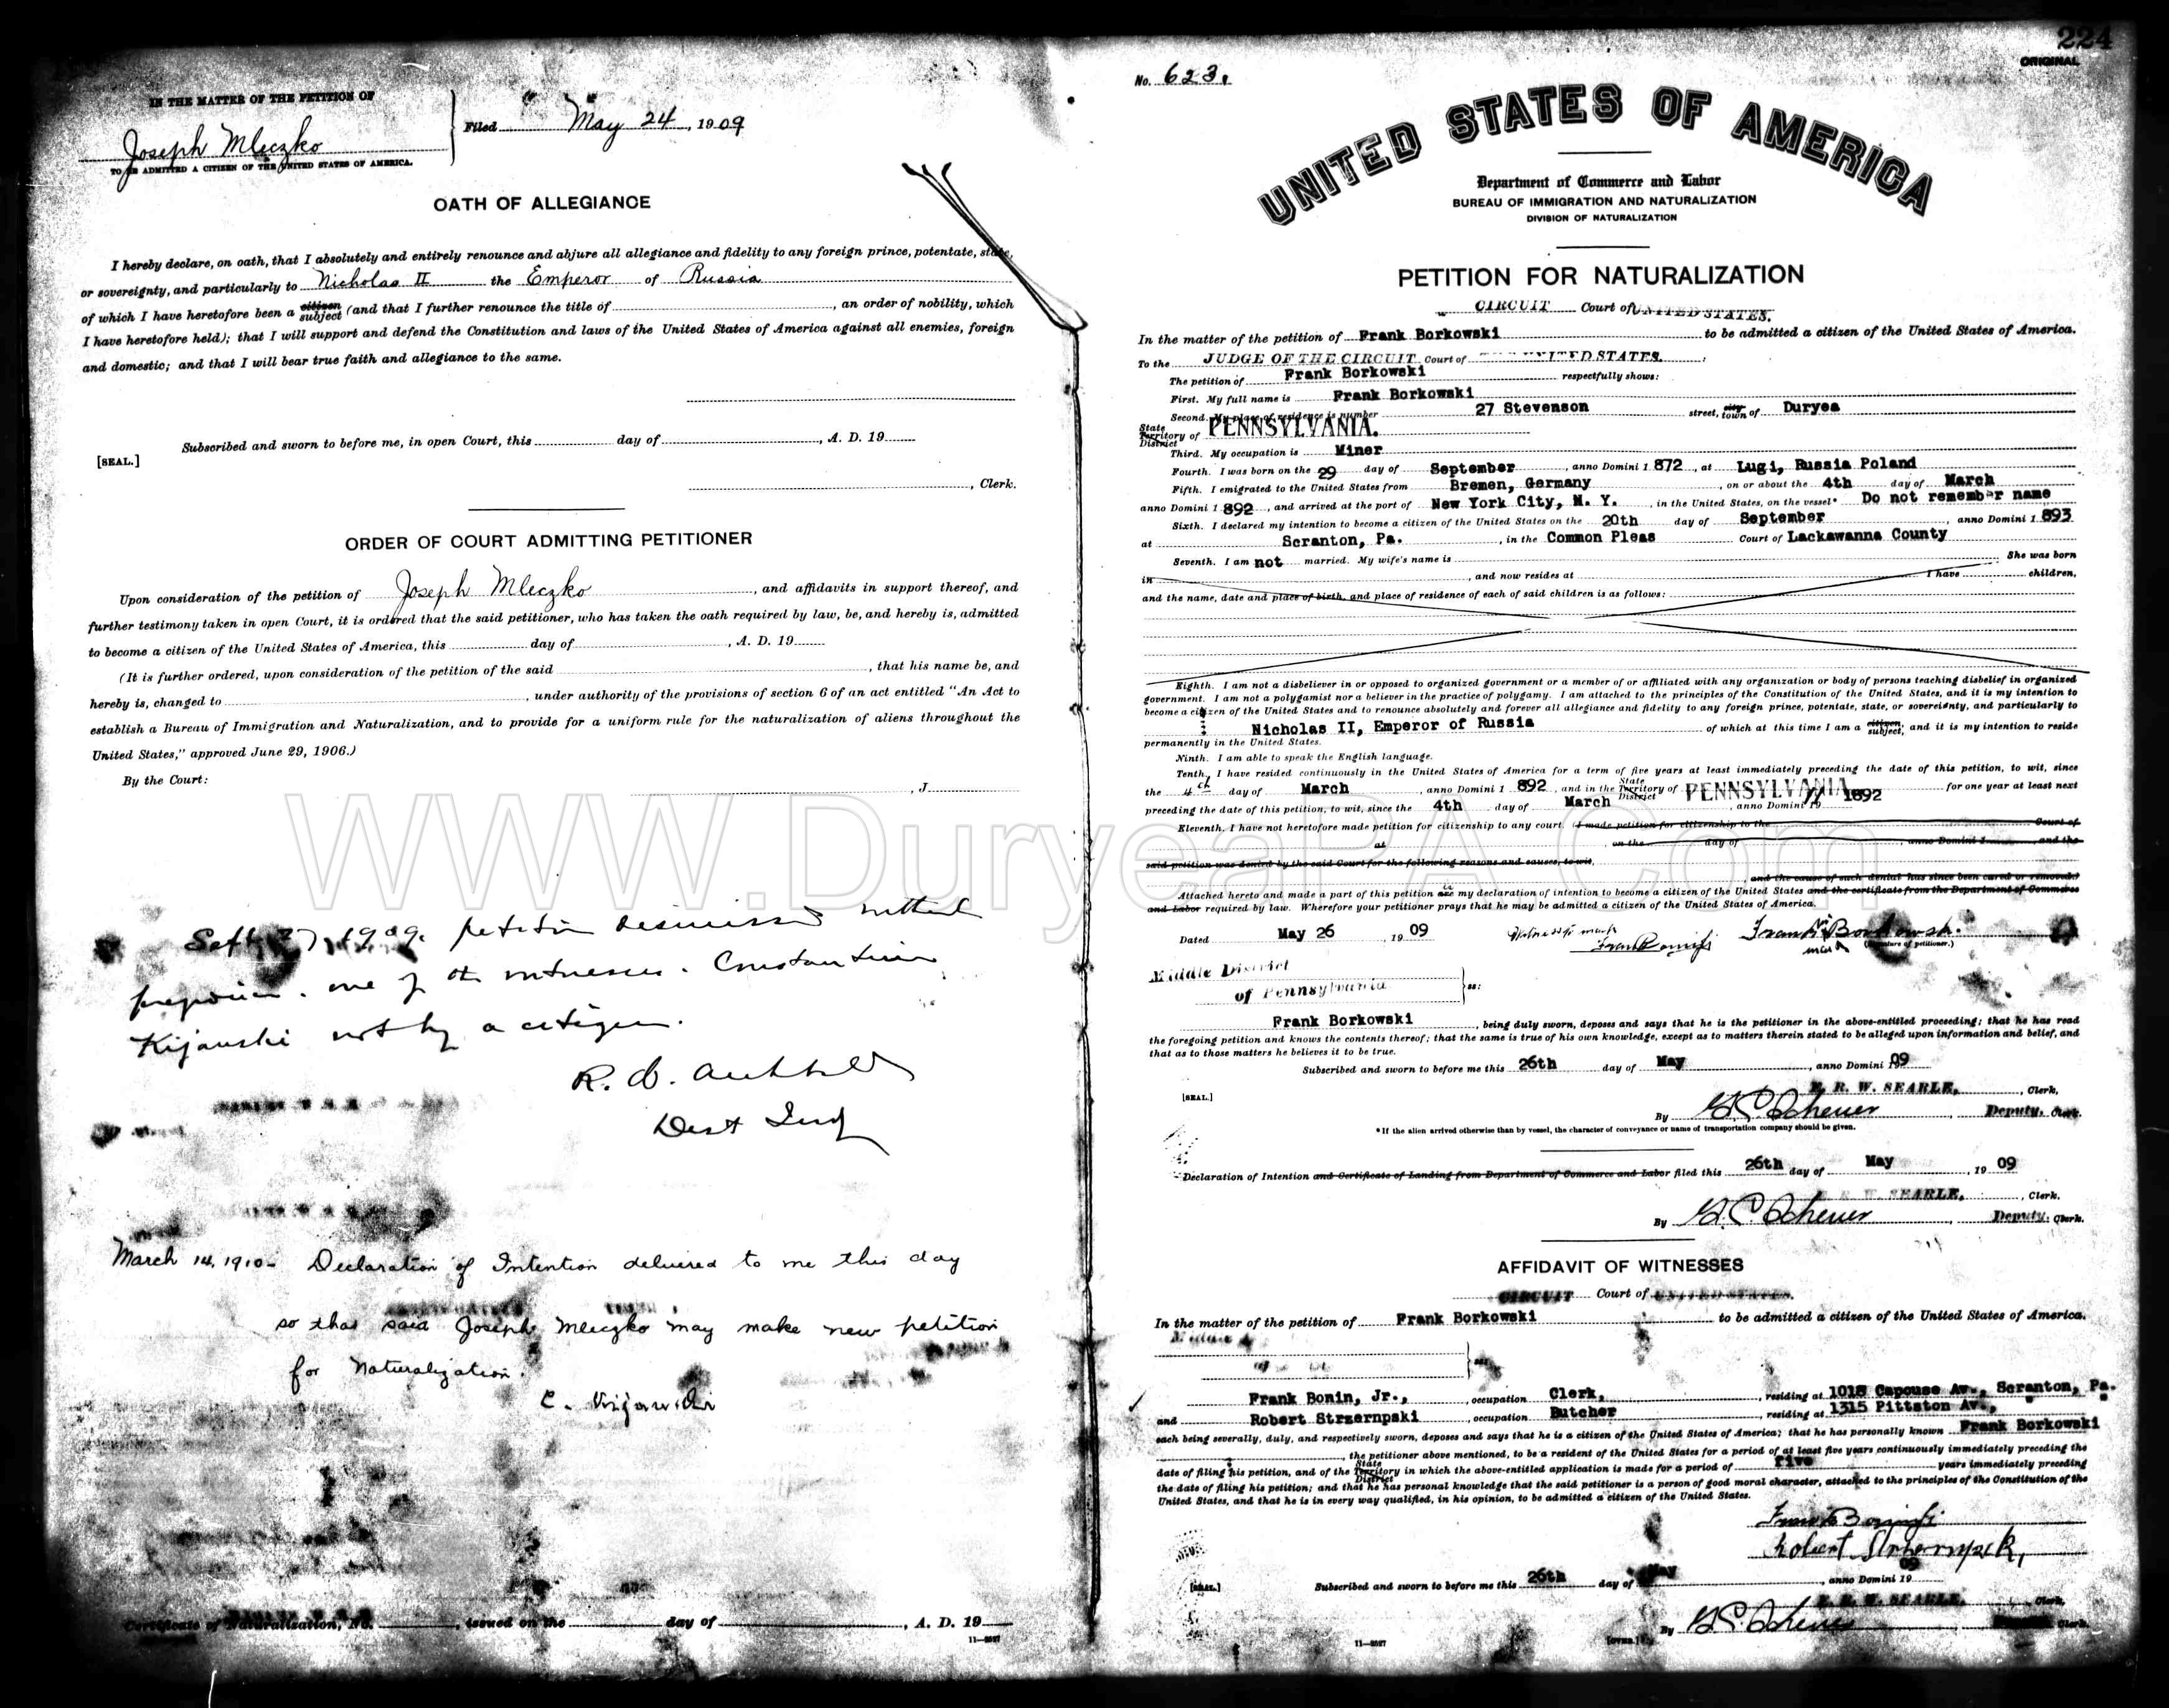 IN THE MATTER OF THE PETITION OF
Joseph Mleczko
TO BE ADMITTED A CITIZEN OF THE UNITED STATES OF AMERICA.
Filed May 24, 1909
OATH OF ALLEGIANCE
I hereby declare, on oath, that I absolutely and entirely renounce and abjure all allegiance and fidelity to any foreign prince, potentate, state,
or sovereignty, and particularly to Nicholas II the Emperor of Russia
of which I have heretofore been a citizen subject (and that I further renounce the title of , an order of nobility, which
I have heretofore held); that I will support and defend the Constitution and laws of the United States of America against all enemies, foreign
and domestic; and that I will bear true faith and allegiance to the same.
Subscribed and sworn to before me, in open Court, this day of , A. D. 19
[SEAL.]
, Clerk.
ORDER OF COURT ADMITTING PETITIONER
Upon consideration of the petition of Joseph Mleczko , and affidavits in support thereof, and
further testimony taken in open Court, it is ordered that the said petitioner, who has taken the oath required by law, be, and hereby is, admitted
to become a citizen of the United States of America, this day of , A. D. 19
(It is further ordered, upon consideration of the petition of the said , that his name be, and
hereby is, changed to , under authority of the provisions of section 6 of an act entitled "An Act to
establish a Bureau of Immigration and Naturalization, and to provide for a uniform rule for the naturalization of aliens throughout the
United States," approved June 29, 1906.)
By the Court:
, J
www.DuryeaPA.Com
Sept 27, 1909. petition dismissed without
prejudice. one of the witnesses. Constantine
Kijauski not being a citizen.
R. W.
Dist Judg
March 14, 1910- Declaration of Intention delivered to me this day
so that said Joseph Mleczko may make new petition
for Naturalization.
C.
Certificate of Naturalization, No. , issued on the day of , A. D. 19
11-2527
224
ORIGINAL
No. 623.
UNITED STATES OF AMERICA
Department of Commerce and Labor
BUREAU OF IMMIGRATION AND NATURALIZATION
DIVISION OF NATURALIZATION
PETITION FOR NATURALIZATION
CIRCUIT Court of UNITED STATES.
In the matter of the petition of Frank Borkowski to be admitted a citizen of the United States of America.
To the JUDGE OF THE CIRCUIT Court of UNITED STATES. :
The petition of Frank Borkowski respectfully shows:
First. My full name is Frank Borkowski
Second. My place of residence is number 27 Stevenson street, city town of Duryea
State Territory District of PENNSYLVANIA.
Third. My occupation is Miner
Fourth. I was born on the 29 day of September , anno Domini 1 872 , at Lugi, Russia Poland
Fifth. I emigrated to the United States from Bremen, Germany , on or about the 4th day of March
anno Domini 1 892 , and arrived at the port of New York City, N. Y. , in the United States, on the vessel* Do not remember name
Sixth. I declared my intention to become a citizen of the United States on the 20th day of September , anno Domini 1 893
at Scranton, Pa. , in the Common Pleas Court of Lackawanna County
Seventh. I am not married. My wife's name is She was born
in , and now resides at I have children,
and the name, date and place of birth, and place of residence of each of said children is as follows:
Eighth. I am not a disbeliever in or opposed to organized government or a member of or affiliated with any organization or body of persons teaching disbelief in organized
government. I am not a polygamist nor a believer in the practice of polygamy. I am attached to the principles of the Constitution of the United States, and it is my intention to
become a citizen of the United States and to renounce absolutely and forever all allegiance and fidelity to any foreign prince, potentate, state, or sovereignty, and particularly to
Nicholas II, Emperor of Russia of which at this time I am a citizen, subject, and it is my intention to reside
permanently in the United States.
Ninth. I am able to speak the English language.
Tenth. I have resided continuously in the United States of America for a term of five years at least immediately preceding the date of this petition, to wit, since
the 4th day of March , anno Domini 1 892 , and in the State Territory District of PENNSYLVANIA for one year at least next
preceding the date of this petition, to wit, since the 4th day of March , anno Domini 19 1892
Eleventh. I have not heretofore made petition for citizenship to any court. (I made petition for citizenship to the Court of
at on the day of , anno Domini 1 , and the
said petition was denied by the said Court for the following reasons and causes, to wit,
, and the cause of such denial has since been cured or removed.)
Attached hereto and made a part of this petition are is my declaration of intention to become a citizen of the United States and the certificate from the Department of Commerce
and Labor required by law. Wherefore your petitioner prays that he may be admitted a citizen of the United States of America.
Dated May 26 , 19 09 Witness to mark Frank his Borkowski
mark (Signature of petitioner.)
Middle District
of Pennsylvania ss:
Frank Borkowski , being duly sworn, deposes and says that he is the petitioner in the above-entitled proceeding; that he has read
the foregoing petition and knows the contents thereof; that the same is true of his own knowledge, except as to matters therein stated to be alleged upon information and belief, and
that as to those matters he believes it to be true.
Subscribed and sworn to before me this 26th day of May , anno Domini 19 09
[SEAL.]
E. R. W. SEARLE, , Clerk,
By G. C. Scheuer , Deputy. Clerk.
*If the alien arrived otherwise than by vessel, the character of conveyance or name of transportation company should be given.
Declaration of Intention and Certificate of Landing from Department of Commerce and Labor filed this 26th day of May , 19 09
E. R. W. SEARLE, , Clerk.
By G. C. Scheuer , Deputy. Clerk.
AFFIDAVIT OF WITNESSES
CIRCUIT Court of UNITED STATES.
In the matter of the petition of Frank Borkowski to be admitted a citizen of the United States of America.
Middle
ss:
Frank Bonin, Jr., , occupation Clerk, , residing at 1018 Capouse Av., Scranton, Pa.
and Robert Strzernpski , occupation Butcher , residing at 1315 Pittston Av.,
each being severally, duly, and respectively sworn, deposes and says that he is a citizen of the United States of America; that he has personally known Frank Borkowski
, the petitioner above mentioned, to be a resident of the United States for a period of at least five years continuously immediately preceding the
date of filing his petition, and of the State Territory District in which the above-entitled application is made for a period of five years immediately preceding
the date of filing his petition; and that he has personal knowledge that the said petitioner is a person of good moral character, attached to the principles of the Constitution of the
United States, and that he is in every way qualified, in his opinion, to be admitted a citizen of the United States.
Robert
[SEAL.] Subscribed and sworn to before me this 26th day of May , anno Domini 19 09
E. R. W. SEARLE, , Clerk,
By G. C. Scheuer Clerk.
11-2527
[OVER.]